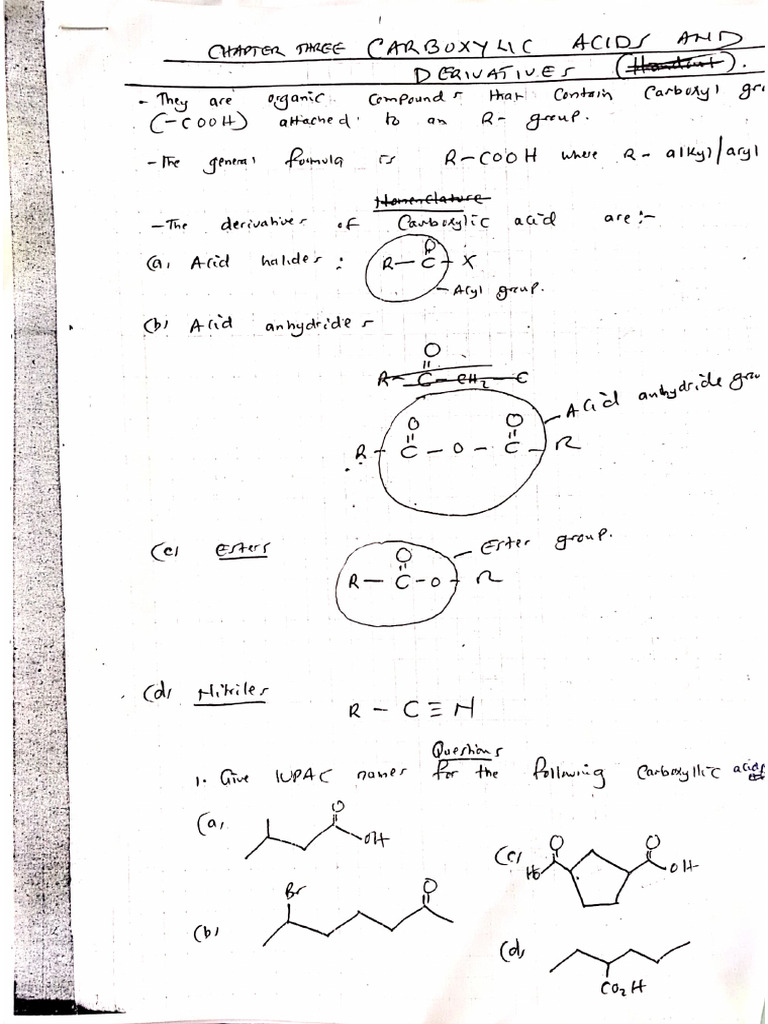 CHAPTER THREE CARBOXYLIC ACIDS AND
DERIVATIVES (Handout).
- They are organic compounds that contain carboxyl gro
(-COOH) attached to an R- group.
- The general formula is R-COOH where R- alkyl/aryl
Nomenclature
- The derivatives of Carboxylic acid are:-
(a, Acid halides:
O
R - C - X
Acyl group.
(b) Acid anhydrides
O
R - C - CH2 - C
Acid anhydride grou
O O
R - C - O - C - R
(c) Esters
Ester group.
O
R - C - O - R
(d, Nitriles
R - C ≡ N
Questions
1. Give IUPAC names for the following Carboxyllic acids
(a,
O
OH
(b)
Br
O
(c)
O O
HO OH
(d,
CO2H